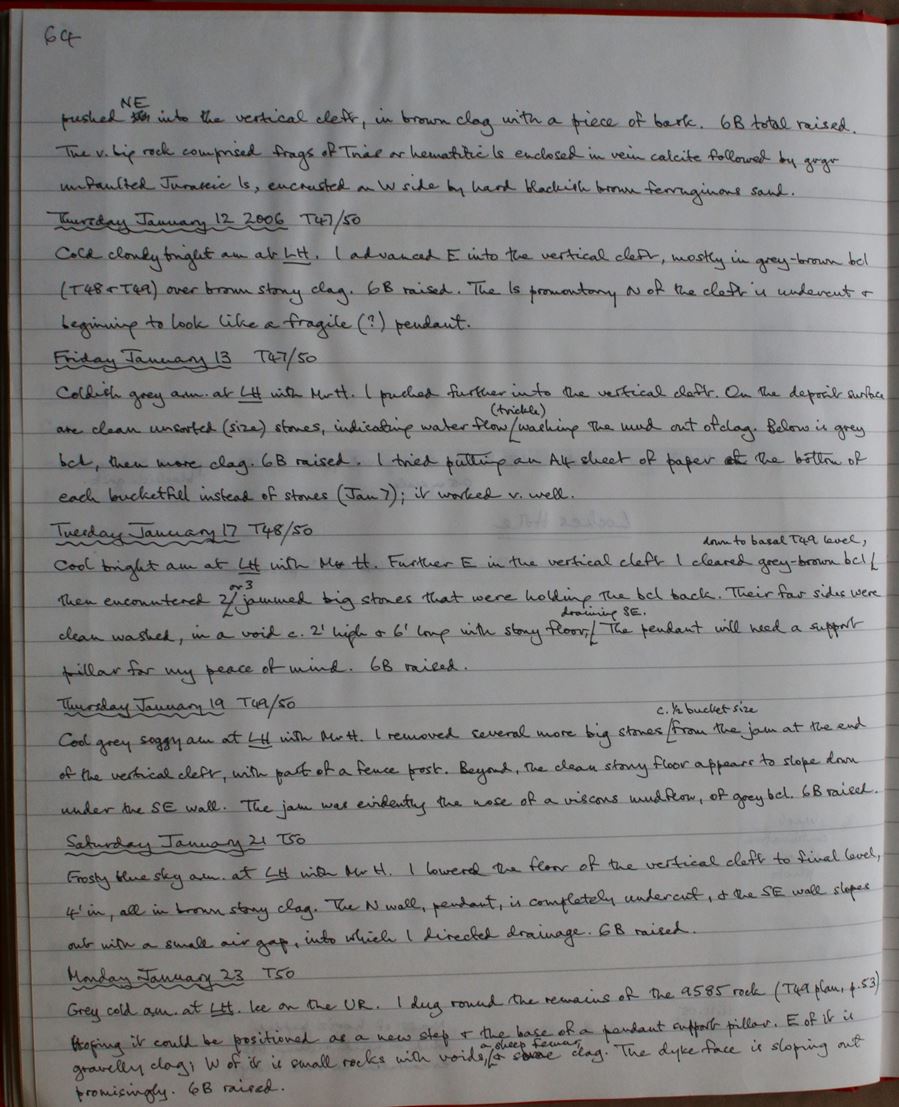 64
NE
pushed into the vertical cleft, in brown clag with a piece of bark. 6B total raised.
The v. big rock comprised frags of Trias or hematitic ls enclosed in vein calcite followed by gygy
unfaulted Jurassic ls, encrusted on W side by hard blackish brown ferruginous sand.
Thursday January 12 2006 T47/50
Cold cloudy bright am at LH. I advanced E into the vertical cleft, mostly in grey-brown bcl
(T48 & T49) over brown stony clag. 6B raised. The ls promontory N of the cleft is undercut &
beginning to look like a fragile (?) pendant.
Friday January 13 T47/50
Coldish grey am. at LH with Mr H. I pushed further into the vertical cleft. On the deposit surface
(trickle)
are clean unsorted (size) stones, indicating water flow / washing the mud out of clag. Below is grey
bcl, then more clag. 6B raised. I tried putting an A4 sheet of paper at the bottom of
each bucketfill instead of stones (Jan 7); it worked v. well.
Tuesday January 17 T48/50
down to basal T49 level,
Cool bright am at LH with Mr H. Further E in the vertical cleft I cleared grey-brown bcl /
or 3
then encountered 2 / jammed big stones that were holding the bcl back. Their far sides were
draining SE.
clean washed, in a void c. 2' high & 6' long with stony floor, / The pendant will need a support
pillar for my peace of mind. 6B raised.
Thursday January 19 T49/50
c. ½ bucket size
Cool grey soggy am at LH with Mr H. I removed several more big stones / from the jam at the end
of the vertical cleft, with part of a fence post. Beyond, the clean stony floor appears to slope down
under the SE wall. The jam was evidently the nose of a viscous mudflow, of grey bcl. 6B raised.
Saturday January 21 T50
Frosty blue sky am. at LH with Mr H. I lowered the floor of the vertical cleft to final level,
4' in, all in brown stony clag. The N wall, pendant, is completely undercut, & the SE wall slopes
out with a small air gap, into which I directed drainage. 6B raised.
Monday January 23 T50
Grey cold am. at LH. Ice on the UR. I dug round the remains of the 9585 rock (T49 plan, p.53)
hoping it could be positioned as a new step & the base of a pendant support pillar. E of it is
a sheep femur,
gravelly clag; W of it is small rocks with voids, / & some clag. The dyke face is sloping out
promisingly. 6B raised.